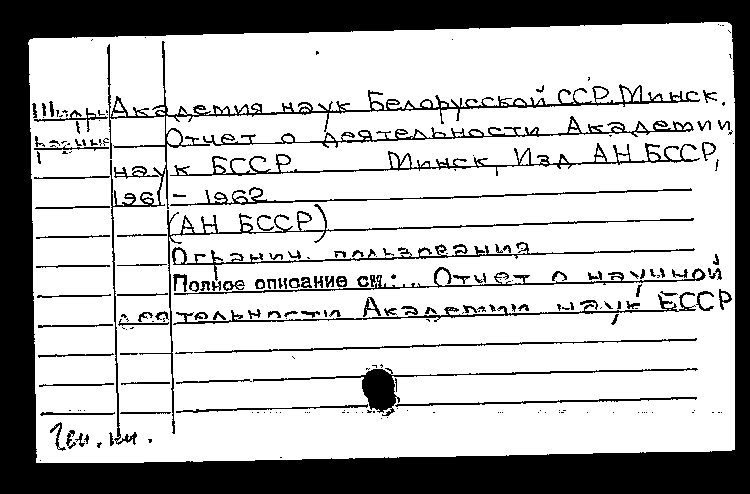 Шифры Академия наук Белорусской ССР. Минск.
разные Отчет о деятельности Академии
наук БССР. Минск, Изд АН БССР,
1961 - 1962
(АН БССР)
Огранич. пользования
Полное описание см.: .. Отчет о научной
деятельности Академии наук БССР